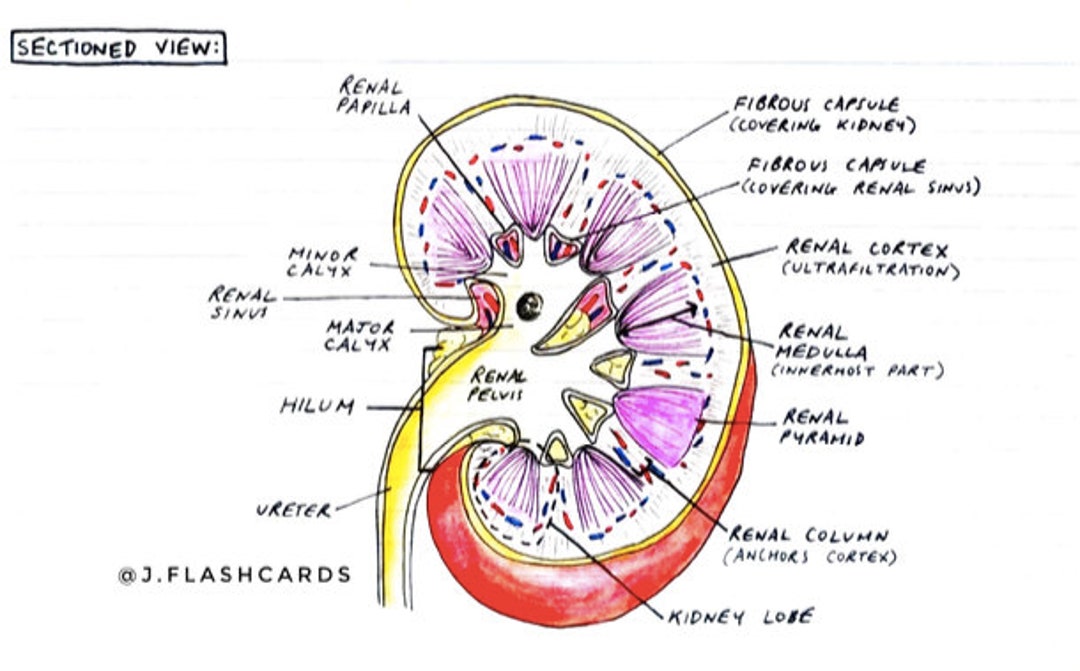 SECTIONED VIEW:
RENAL
PAPILLA
FIBROUS CAPSULE
(COVERING KIDNEY)
FIBROUS CAPSULE
(COVERING RENAL SINUS)
MINOR
CALYX
RENAL CORTEX
(ULTRAFILTRATION)
RENAL
SINUS
MAJOR
CALYX
RENAL
MEDULLA
(INNERMOST PART)
RENAL
PELVIS
HILUM
RENAL
PYRAMID
URETER
RENAL COLUMN
(ANCHORS CORTEX)
@J.FLASHCARDS
KIDNEY LOBE